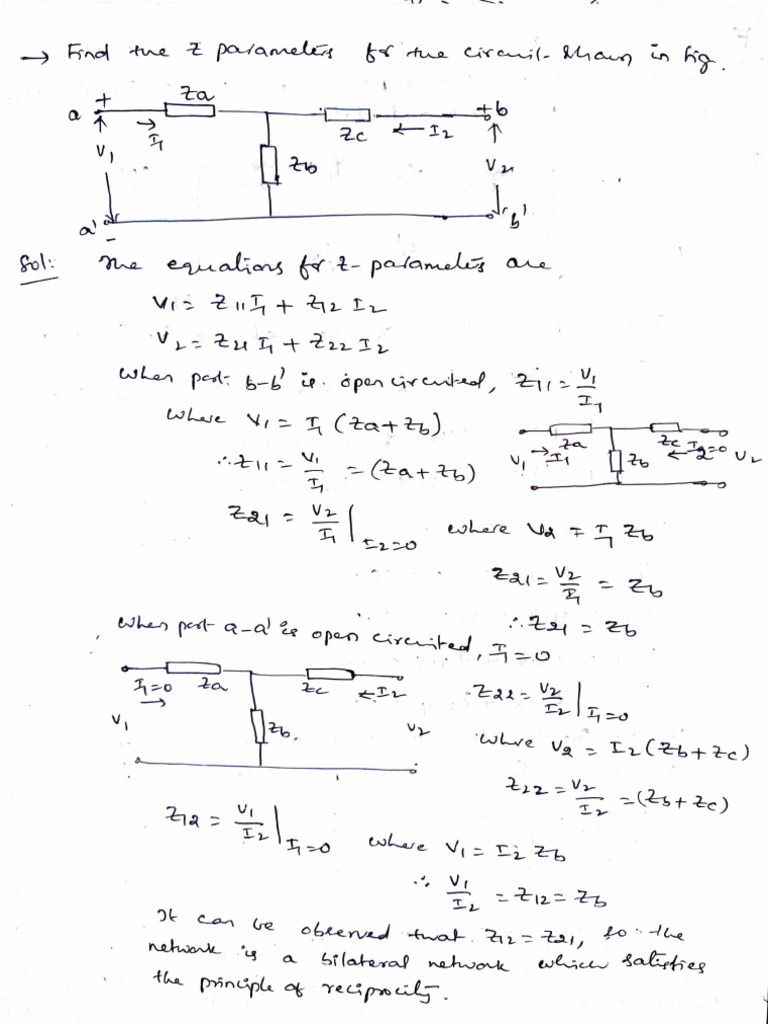 → Find the Z parameters for the circuit shown in fig.
a + Za Zc + b
I1 ← I2
V1 Zb V2
a' - b'
Sol: The equations for Z-parameters are
V1 = Z11 I1 + Z12 I2
V2 = Z21 I1 + Z22 I2
When port b-b' is open circuited, Z11 = V1/I1
where V1 = I1 (Za + Zb)
∴ Z11 = V1/I1 = (Za + Zb)
V1 → I1 Za Zb Zc ← I2=0 V2
Z21 = V2/I1 | I2=0 where V2 = I1 Zb
Z21 = V2/I1 = Zb
∴ Z21 = Zb
When port a-a' is open circuited, I1 = 0
I1=0 → Za Zc ← I2
V1 Zb V2
Z22 = V2/I2 | I1=0
where V2 = I2 (Zb + Zc)
Z22 = V2/I2 = (Zb + Zc)
Z12 = V1/I2 | I1=0 where V1 = I2 Zb
∴ V1/I2 = Z12 = Zb
It can be observed that Z12 = Z21, so the
network is a bilateral network which satisfies
the principle of reciprocity.